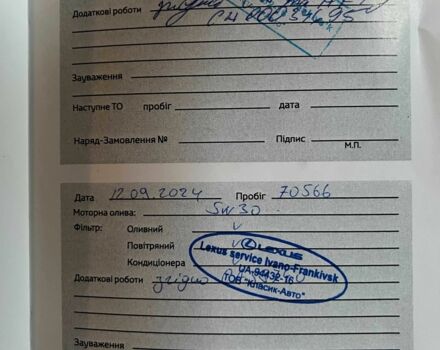 Додаткові роботи згідно
СН 00034695
Зауваження
Наступне ТО пробіг дата
Наряд-Замовлення № Підпис
М.П.
Дата 12.09.2024 Пробіг 70566
Моторна олива: 5w30
Фільтр: Оливний v
Повітряний v
Кондиціонера
LEXUS
Lexus service Ivano-Frankivsk
UA-94432-16
ТОВ "Класик-Авто"
Додаткові роботи згідно
Зауваження